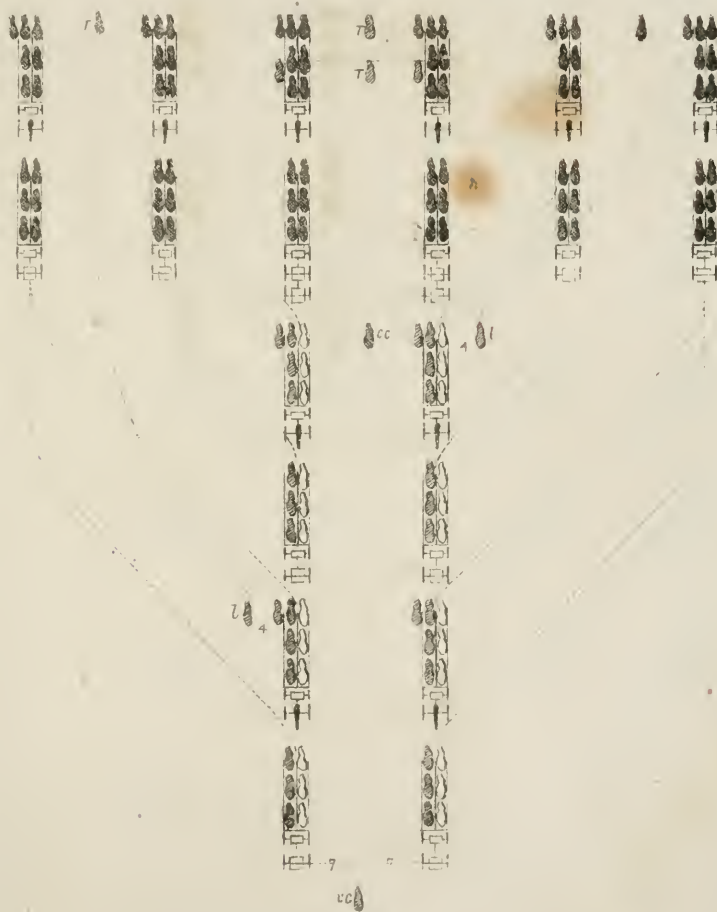 r T
T
n
cc 4 l
l 4
9
cc